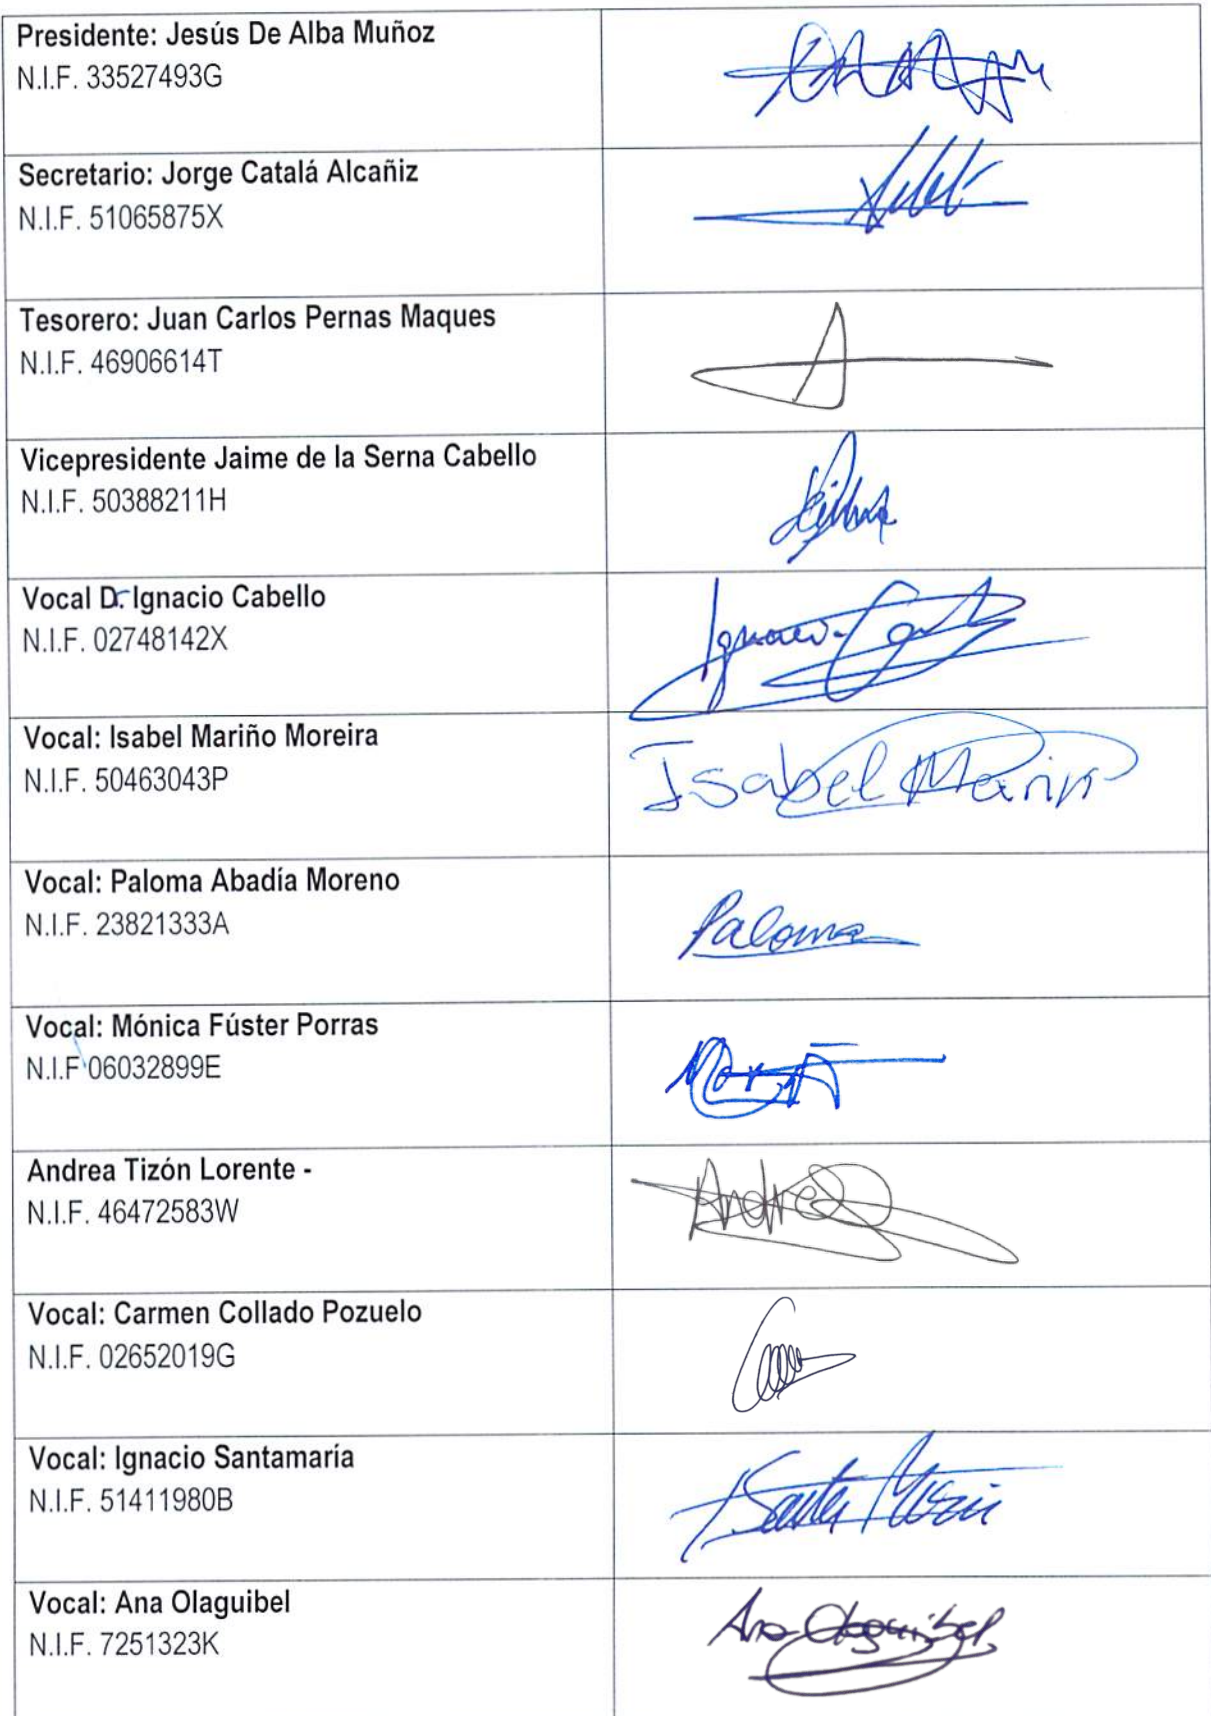 Presidente: Jesús De Alba Muñoz
N.I.F. 33527493G
Secretario: Jorge Catalá Alcañiz
N.I.F. 51065875X
Tesorero: Juan Carlos Pernas Maques
N.I.F. 46906614T
Vicepresidente Jaime de la Serna Cabello
N.I.F. 50388211H
Vocal D. Ignacio Cabello
N.I.F. 02748142X
Ignacio
Vocal: Isabel Mariño Moreira
N.I.F. 50463043P
Isabel Mariño
Vocal: Paloma Abadía Moreno
N.I.F. 23821333A
Paloma
Vocal: Mónica Fúster Porras
N.I.F 06032899E
Andrea Tizón Lorente -
N.I.F. 46472583W
Andrea
Vocal: Carmen Collado Pozuelo
N.I.F. 02652019G
Vocal: Ignacio Santamaría
N.I.F. 51411980B
Vocal: Ana Olaguibel
N.I.F. 7251323K
Ana Olaguibel